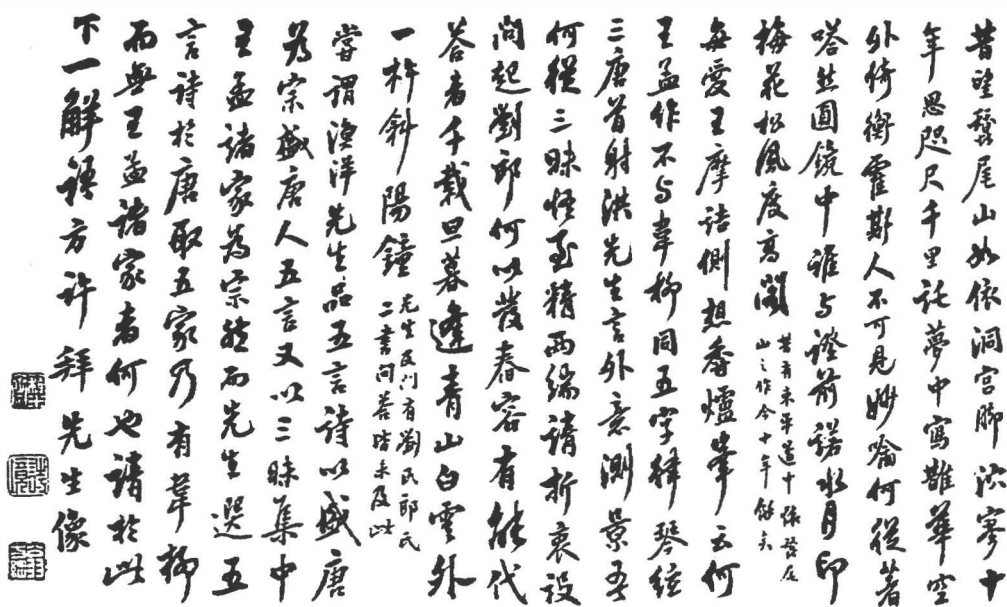 昔望蠶尾山如依洞宮脚泬寥十
年思咫尺千里託夢中寫雖華空
外倚衡霍斯人不可見妙喻何從著
嗒然圓鏡中誰与證前諾水月印
梅花松風度高閣
昔有東平道中蠶尾
山之作今十年餘矣
每愛王摩詰側想香爐峯云何
王孟作不与韋柳同五字律琴絃
三唐首射洪先生言外意測景吾
何從三昧悟至精兩端請折衷設
問起劉郎何以發春容有能代
答者千載旦暮逢青山白雲外
一杵斜陽鐘
先生及門有劉氏郎氏
二書問答皆未及此
嘗謂漁洋先生品五言詩以盛唐
為宗盛唐人五言又以三昧集中
王孟諸家為宗然而先生選五
言詩於唐取五家乃有韋柳
而無王孟諸家者何也請於此
下一解語方許拜先生像